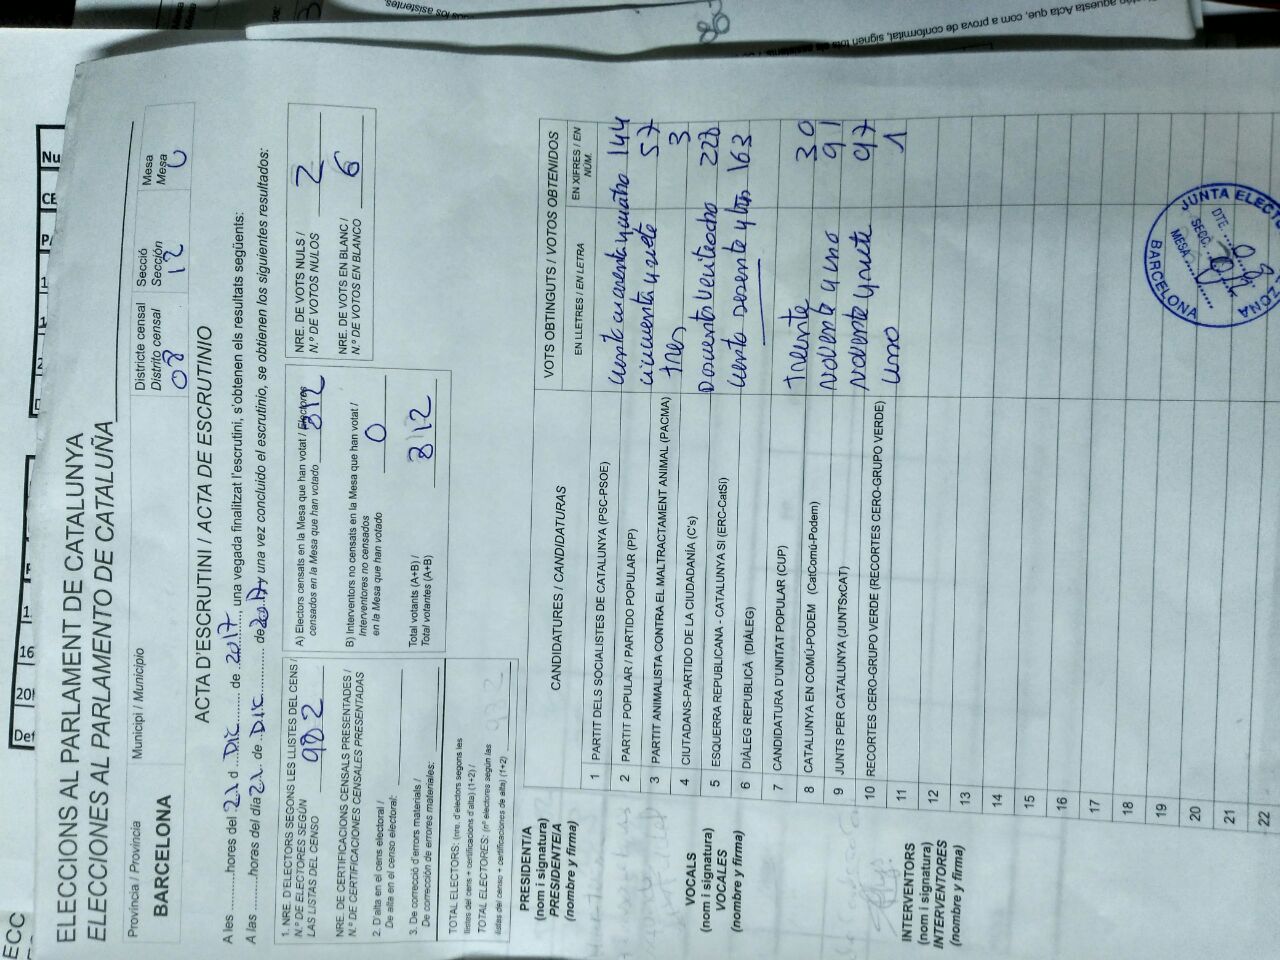 ELECCIONS AL PARLAMENT DE CATALUNYA
ELECCIONES AL PARLAMENTO DE CATALUÑA
Província / Provincia
BARCELONA
Municipi / Municipio
Districte censal
Distrito censal
08
Secció
Sección
12
Mesa
Mesa
ACTA D'ESCRUTINI / ACTA DE ESCRUTINIO
A les ........ hores del 21 d Dic ........ de 2017 ........, una vegada finalitzat l'escrutini, s'obtenen els resultats següents:
A las ........ horas del día 21 de Dic ........ de 2017 y una vez concluido el escrutinio, se obtienen los siguientes resultados:
1. NRE. D'ELECTORS SEGONS LES LLISTES DEL CENS /
N.º DE ELECTORES SEGÚN
LAS LISTAS DEL CENSO 982
NRE. DE CERTIFICACIONS CENSALS PRESENTADES /
N.º DE CERTIFICACIONES CENSALES PRESENTADAS
2. D'alta en el cens electoral /
De alta en el censo electoral:
3. De correcció d'errors materials /
De corrección de errores materiales:
TOTAL ELECTORS: (nre. d'electors segons les
llistes del cens + certificacions d'alta) (1+2) /
TOTAL ELECTORES: (nº electores según las
listas del censo + certificaciones de alta) (1+2) 982
A) Electors censats en la Mesa que han votat / Electores
censados en la Mesa que han votado 812
B) Interventors no censats en la Mesa que han votat /
Interventores no censados
en la Mesa que han votado 0
Total votants (A+B) /
Total votantes (A+B) 812
NRE. DE VOTS NULS /
N.º DE VOTOS NULOS 2
NRE. DE VOTS EN BLANC /
N.º DE VOTOS EN BLANCO 6
CANDIDATURES / CANDIDATURAS
VOTS OBTINGUTS / VOTOS OBTENIDOS
EN LLETRES / EN LETRA
EN XIFRES / EN NÚM.
1 PARTIT DELS SOCIALISTES DE CATALUNYA (PSC-PSOE) ciento cuarenta y cuatro 144
2 PARTIT POPULAR / PARTIDO POPULAR (PP) cincuenta y siete 57
3 PARTIT ANIMALISTA CONTRA EL MALTRACTAMENT ANIMAL (PACMA) tres 3
4 CIUTADANS-PARTIDO DE LA CIUDADANÍA (C's) 228
5 ESQUERRA REPUBLICANA - CATALUNYA SI (ERC-CatSí) ciento sesenta y tres 163
6 DIÀLEG REPUBLICÀ (DIÀLEG)
7 CANDIDATURA D'UNITAT POPULAR (CUP) treinta 30
8 CATALUNYA EN COMÚ-PODEM (CatComú-Podem) noventa y uno 91
9 JUNTS PER CATALUNYA (JUNTSxCAT) noventa y siete 97
10 RECORTES CERO-GRUPO VERDE (RECORTES CERO-GRUPO VERDE) uno 1
11
12
13
14
15
16
17
18
19
20
21
22
PRESIDENT/A
(nom i signatura)
PRESIDENTE/A
(nombre y firma)
VOCALS
(nom i signatura)
VOCALES
(nombre y firma)
INTERVENTORS
(nom i signatura)
INTERVENTORES
(nombre y firma)
JUNTA ELECT
ZONA
BARCELONA
DTE.
SECC.
MESA
ECC
Nu
CE
PA
20h
16